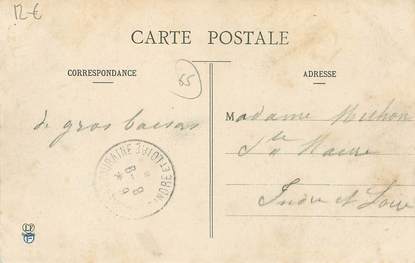 12€
CARTE POSTALE
CORRESPONDANCE
ADRESSE
85
de gros baisers
Madame Michon
Ste Maure
Indre et Loire
TOURAINE
INDRE ET LOIRE